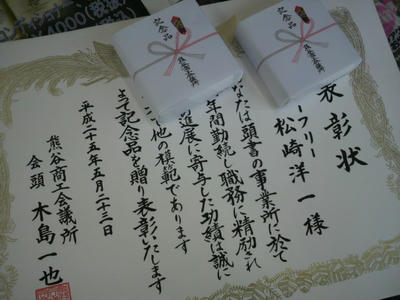 表彰状
ーフリー
松崎洋一様
なたは頭書の事業所に於て
年間勤続し職務に精励され
進展に寄与した功績は誠に
他の模範であります
よって記念品を贈り表彰いたします
平成二十五年五月二十三日
熊谷商工会議所
会頭 木島一也
記念品
熊谷商工会議所
記念品
4000